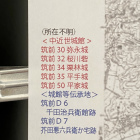 (所在不明)
<中近世城館>
筑前30 弥永城
筑前32 桜川砦
筑前34 栗林城
筑前35 平手城
筑前50 平家城
<城館等伝承地>
筑前D6
千田治兵衛館跡
筑前D7
芥田悪六兵衛が古跡